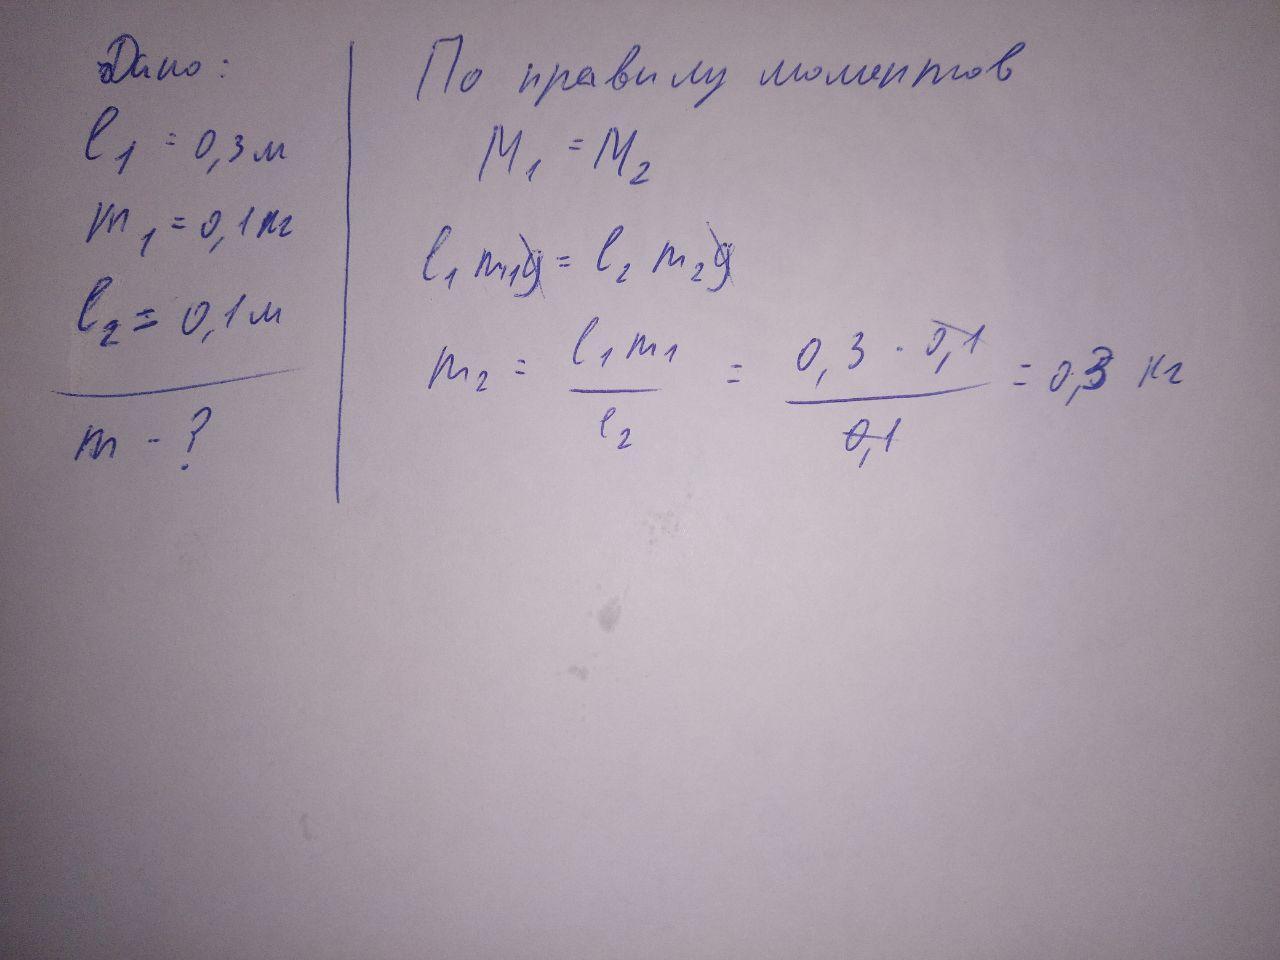 Дано:
l1 = 0,3 м
m1 = 0,1 кг
l2 = 0,1 м
m - ?
По правилу моментов
M1 = M2
l1 m1g = l2 m2g
m2 = l1 m1 / l2 = 0,3 · 0,1 / 0,1 = 0,3 кг